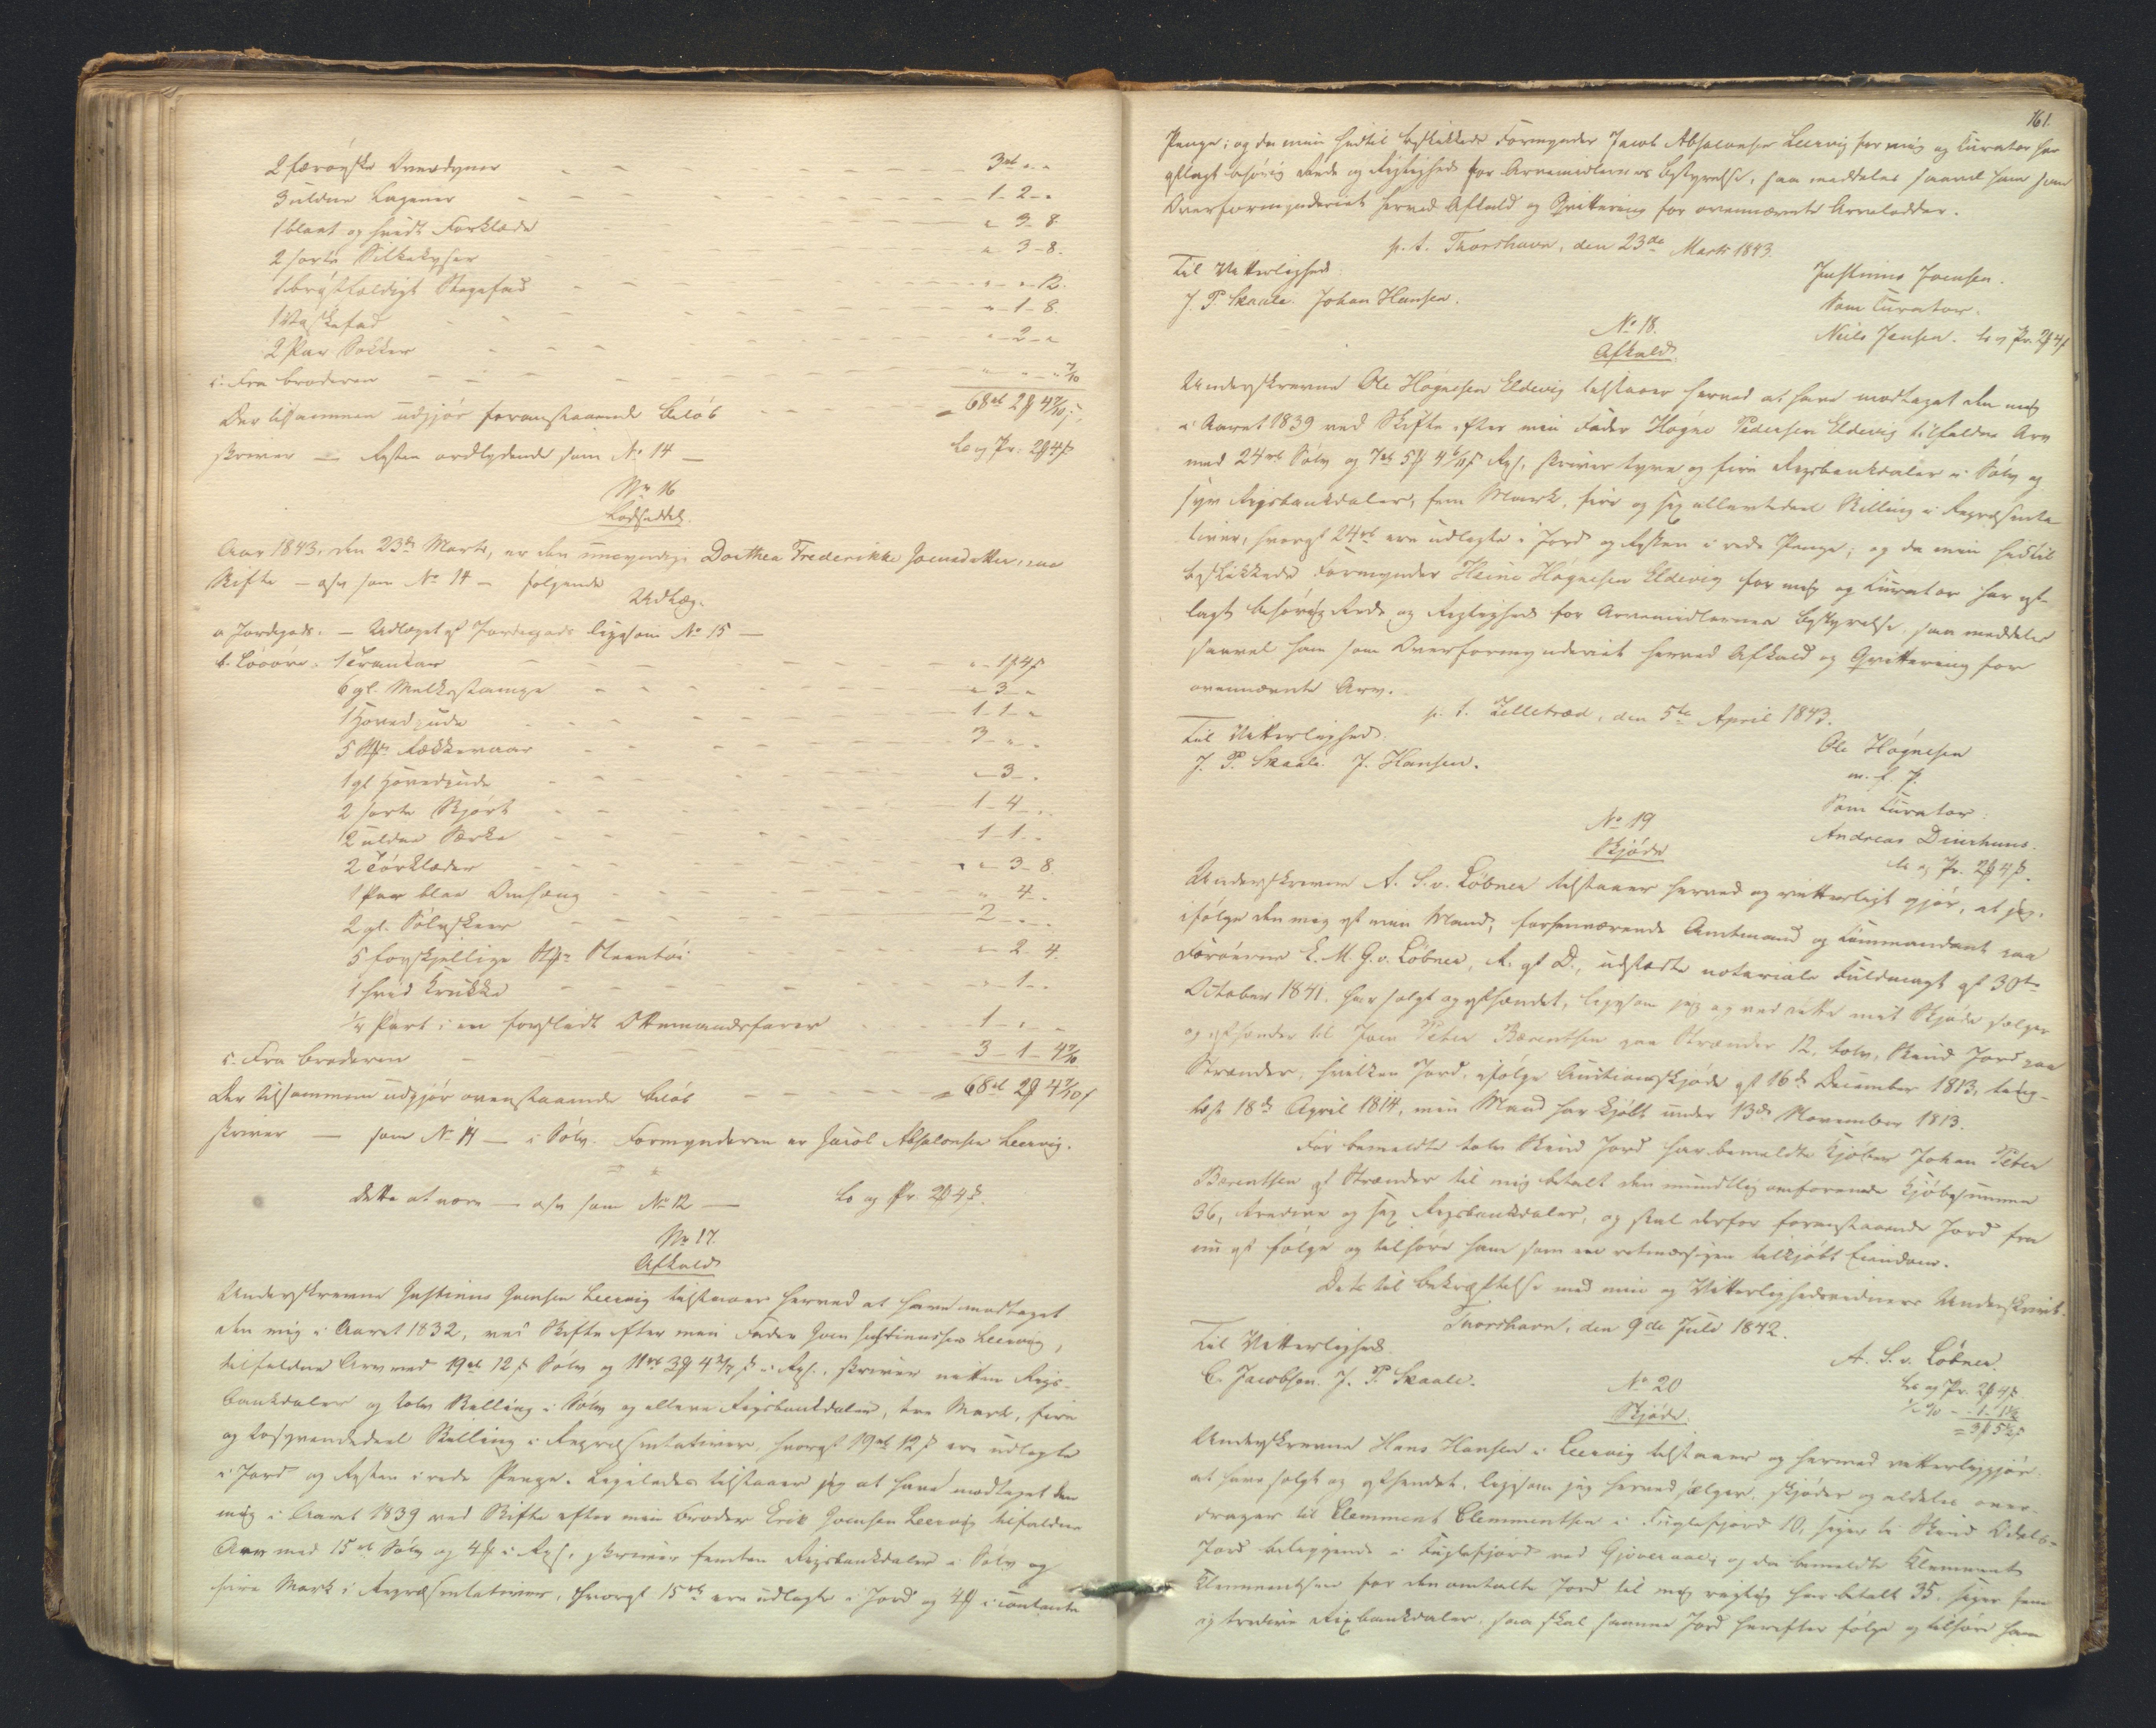 2 færøiske Overdyner - - - 3rd " "
3 uldne Lagener - - - 1 - 2 - "
1 blaat og hvidt Forklæde - - - " 3 - 8.
2 sorte Silkekyser - - - " 3 - 8.
1 brøstholdigt Stegefad - - - " - " - 12.
1 Vaskefad - - - " - 1 - 8.
2 Par Sokker - - - " - 2 - "
c. Fra Broderen - - - " " - " 7/10
Der tilsammen udgjør foranstaaende Beløb - - - = 68rd 2 # 4 7/10 ß;
skriver — Resten ordlydende som No 14 —
Ls og Pr. 2 # 4 ß
No 16
Lodseddel.
Aar 1843, den 23de Marts, er den umyndige Dorthea Frederikke Joensdatter, ved
Skifte — osv som No 14 — følgende
Udlæg.
a Jordegods. — Udlæget af Jordegods ligesom No 15 —
b. Løsøre. 1 Trankar - - - " - 1 # 4 ß
6 gl. Melkestampe - - - " 3 - "
1 Hovedpude - - - 1 - 1 - "
5 Stkr. Rækkevaar - - - 3 - " - "
1 gl Hovedpude - - - " 3 - "
2 sorte Skjørt - - - 1 - 4 - "
2 uldne Særke - - - 1 - 1 - "
2 Tørklæder - - - " 3 - 8.
1 Par blaa Omhæng - - - " 4 - "
2 gl. Sølvskeer - - - 2 - " - "
5 forskjellige Stkr Steentøi - - - " 2 - 4.
1 hvid Krukke - - - " - 1 - "
1/4 Part i en forslidt Ottemandsfarer - - - 1 - " - "
c. Fra Broderen - - - 3 - 1 - 4 7/10
Der tilsammen udgjør ovenstaaende Beløb - - - = 68rd 2 # 4 7/10 ß
skriver — som No 14 — i Sølv. Formynderen er Jacob Absalonsen Leervig.
Dette at være — osv som No 12 —
Ls og Pr. 2 # 4 ß.
No 17.
Afkald
Underskrevne Justinus Joensen Leervig tilstaaer herved at have modtaget
den mig i Aaret 1832, ved Skifte efter min Fader Joen Justinussen Leervig,
tilfaldne Arv med 19rd 12 ß Sølv og 11rd 3 # 4 2/7 ß i Rps., skriver nitten Rigs-
bankdaler og tolv Skilling i Sølv og elleve Rigsbankdaler, tre Mark, fire
og tosyvendedeel Skilling i Repræsentativer, hvoraf 19rd 12 ß ere udlagte
i Jord og Resten i rede Penge. Ligeledes tilstaaer jeg at have modtaget den
mig i Aaret 1839 ved Skifte efter min Broder Erik Joensen Leervig tilfaldne
Arv med 15rd Sølv og 4 # i Rps., skriver femten Rigsbankdaler i Sølv og
fire Mark i Repræsentativer, hvoraf 15rd ere udlagte i Jord og 4 # i contante
161.
Penge; og da min hidtil beskikkede Formynder Jacob Absalonsen Leervig for mig og Curator har
aflagt behørig Rede og Rigtighed for Arvemidlernes Bestyrelse, saa meddeles saavel ham som
Overformynderiet herved Afkald og Qvittering for ovennævnte Arvelodder.
p. t. Thorshavn, den 23de Marts 1843.
Til Vitterlighed:
Justinus Joensen.
J. P. Skaale. Johan Hansen.
Som Curator:
Niels Jensen. Ls og Pr. 2 # 4 ß
No 18.
Afkald.
Underskrevne Ole Høgnesen Eldevig tilstaaer herved at have modtaget den mig
i Aaret 1839 ved Skifte efter min Fader Høgne Pedersen Eldevig tilfaldne Arv
med 24rd Sølv og 7rd 5 # 4 6/11 ß Rps., skriver tyve og fire Rigsbankdaler i Sølv og
syv Rigsbankdaler, fem Mark, fire og sex ellevtedeel Skilling i Repræsenta-
tiver, hvoraf 24rd ere udlagte i Jord og Resten i rede Penge; og da min hidtil
beskikkede Formynder Heine Høgnesen Eldevig for mig og Curator har af-
lagt behørig Rede og Rigtighed for Arvemidlernes Bestyrelse, saa meddeles
saavel ham som Overformynderiet herved Afkald og Qvittering for
ovennævnte Arv.
p. t. Zelletræd, den 5te April 1843.
Til Vitterlighed:
Ole Høgnesen
J. P. Skaale. J. Hansen.
m. f. P.
Som Curator:
No 19
Andreas Diurhuus.
Skjøde
Ls og Pr. 2 # 4 ß.
Underskrevne A. S. v. Løbner tilstaaer herved og vitterligt gjør, at jeg,
ifølge den mig af min Mand, forhenværende Amtmand og Commandant paa
Færøerne E. M. G. v. Løbner, R. af D., udstædte notariale Fuldmagt af 30te
October 1841, har solgt og afhændet, ligesom jeg og ved dette mit Skjøde sælger
og afhænder til Joen Peter Bærentsen paa Strænder 12, tolv, Skind Jord paa
Strænder, hvilken Jord, ifølge Auctionsskjøde af 16de December 1813, ting-
læst 18de April 1814, min Mand har kjøbt under 13de November 1813.
For bemeldte tolv Skind Jord har bemeldte Kjøber Johan Peter
Bærentsen af Strænder til mig betalt den mundtlig omforenede Kjøbesumma
36, tredive og sex Rigsbankdaler, og skal derfor foranstaaende Jord fra
nu af følge og tilhøre ham som en retmæssigen tilkjøbt Eiendom.
Dets til Bekræftelse med min og Vitterlighedsvidners Underskrivt.
Thorshavn, den 9de Juli 1842.
Til Vitterlighed:
A. S. v. Løbner.
C. Jacobsen. J. P. Skaale.
Ls og Pr. 2 # 4 ß.
No 20
1/2 % - " 1 - 1 1/2
Skjøde.
= 3 # 5 1/2 ß
Underskrevne Hans Hansen i Leervig tilstaaer og hermed vitterliggjør
at have solgt og afhændet, ligesom jeg herved sælger, skjøder og aldeles over-
drager til Clemment Clemmentsen i Fuglefjord 10, siger ti Skind Odels-
Jord beliggende i Fuglefjord ved Gjøveraae; og da bemeldte Clemment
Clemmentsen for den omtalte Jord til mig rigtig har betalt 35, siger fem
og tredive Rigsbankdaler, saa skal samme Jord herefter følge og tilhøre ham